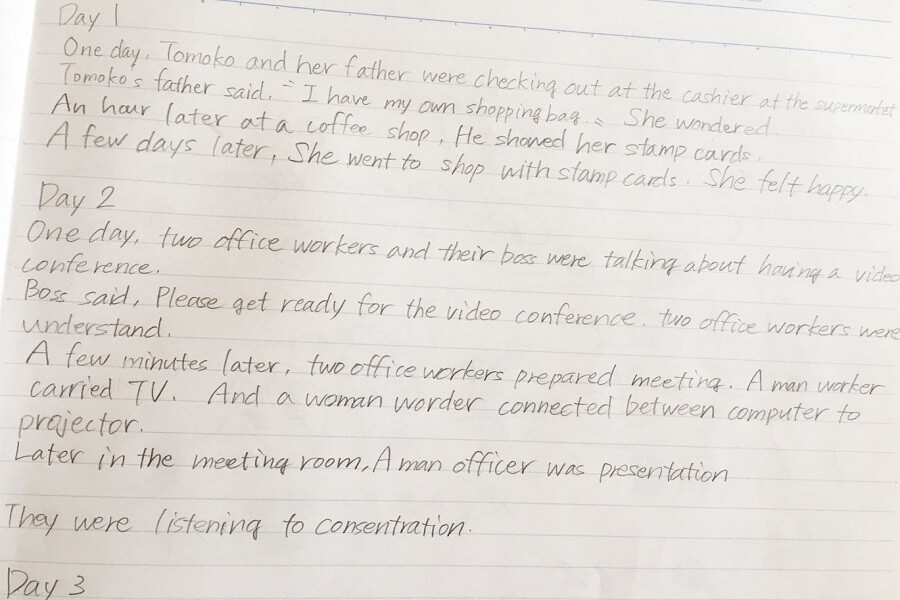 Day 1
One day, Tomoko and her father were checking out at the cashier at the supermarket
Tomoko's father said, "I have my own shopping bag." She wondered.
An hour later at a coffee shop, He showed her stamp cards.
A few days later, She went to shop with stamp cards. She felt happy.
Day 2
One day, two office workers and their boss were talking about having a video
conference.
Boss said, Please get ready for the video conference. two office workers were
understand.
A few minutes later, two office workers prepared meeting. A man worker
carried TV. And a woman worder connected between computer to
projector.
Later in the meeting room, A man officer was presentation
They were listening to consentration.
Day 3